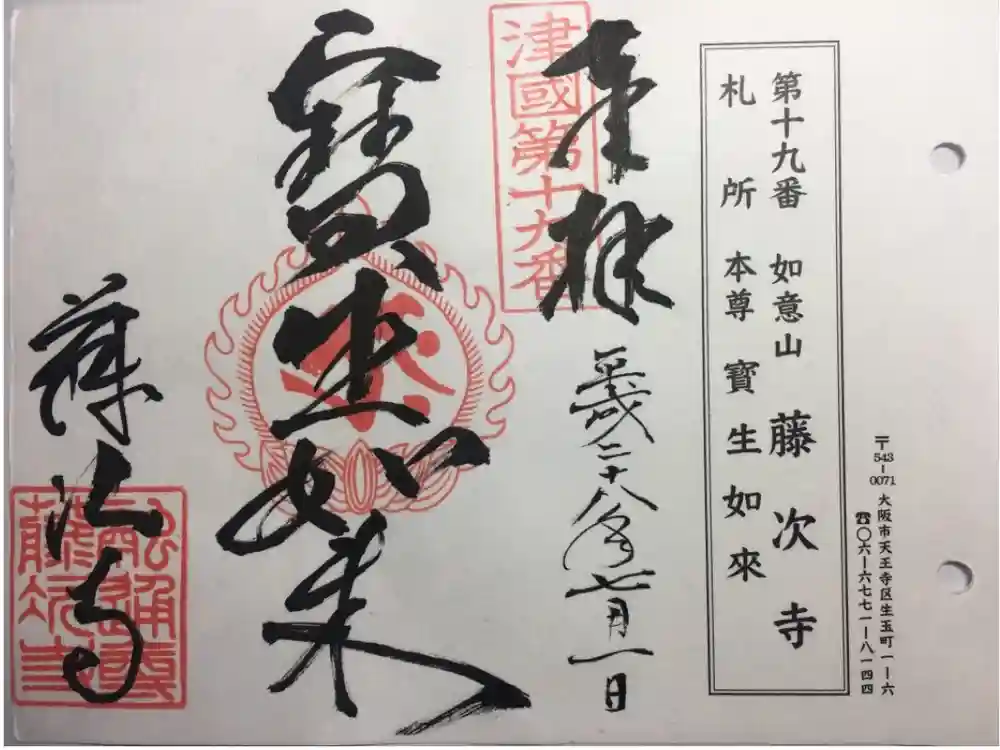 〒543-0071 大阪市天王寺区生玉町一ー六
☎〇六ー六七七一ー八一四四
第十九番 如意山 藤次寺
札所 本尊 寳生如來
奉拝
津國第十九番
平成二十八年七月一日
寳生如来
藤次寺